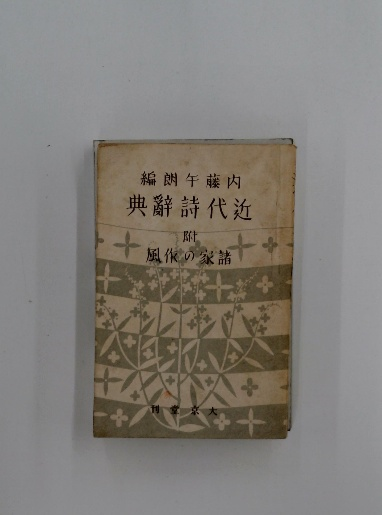 内藤午朗編
近代詩辭典
附
諸家の作風
大京堂刊